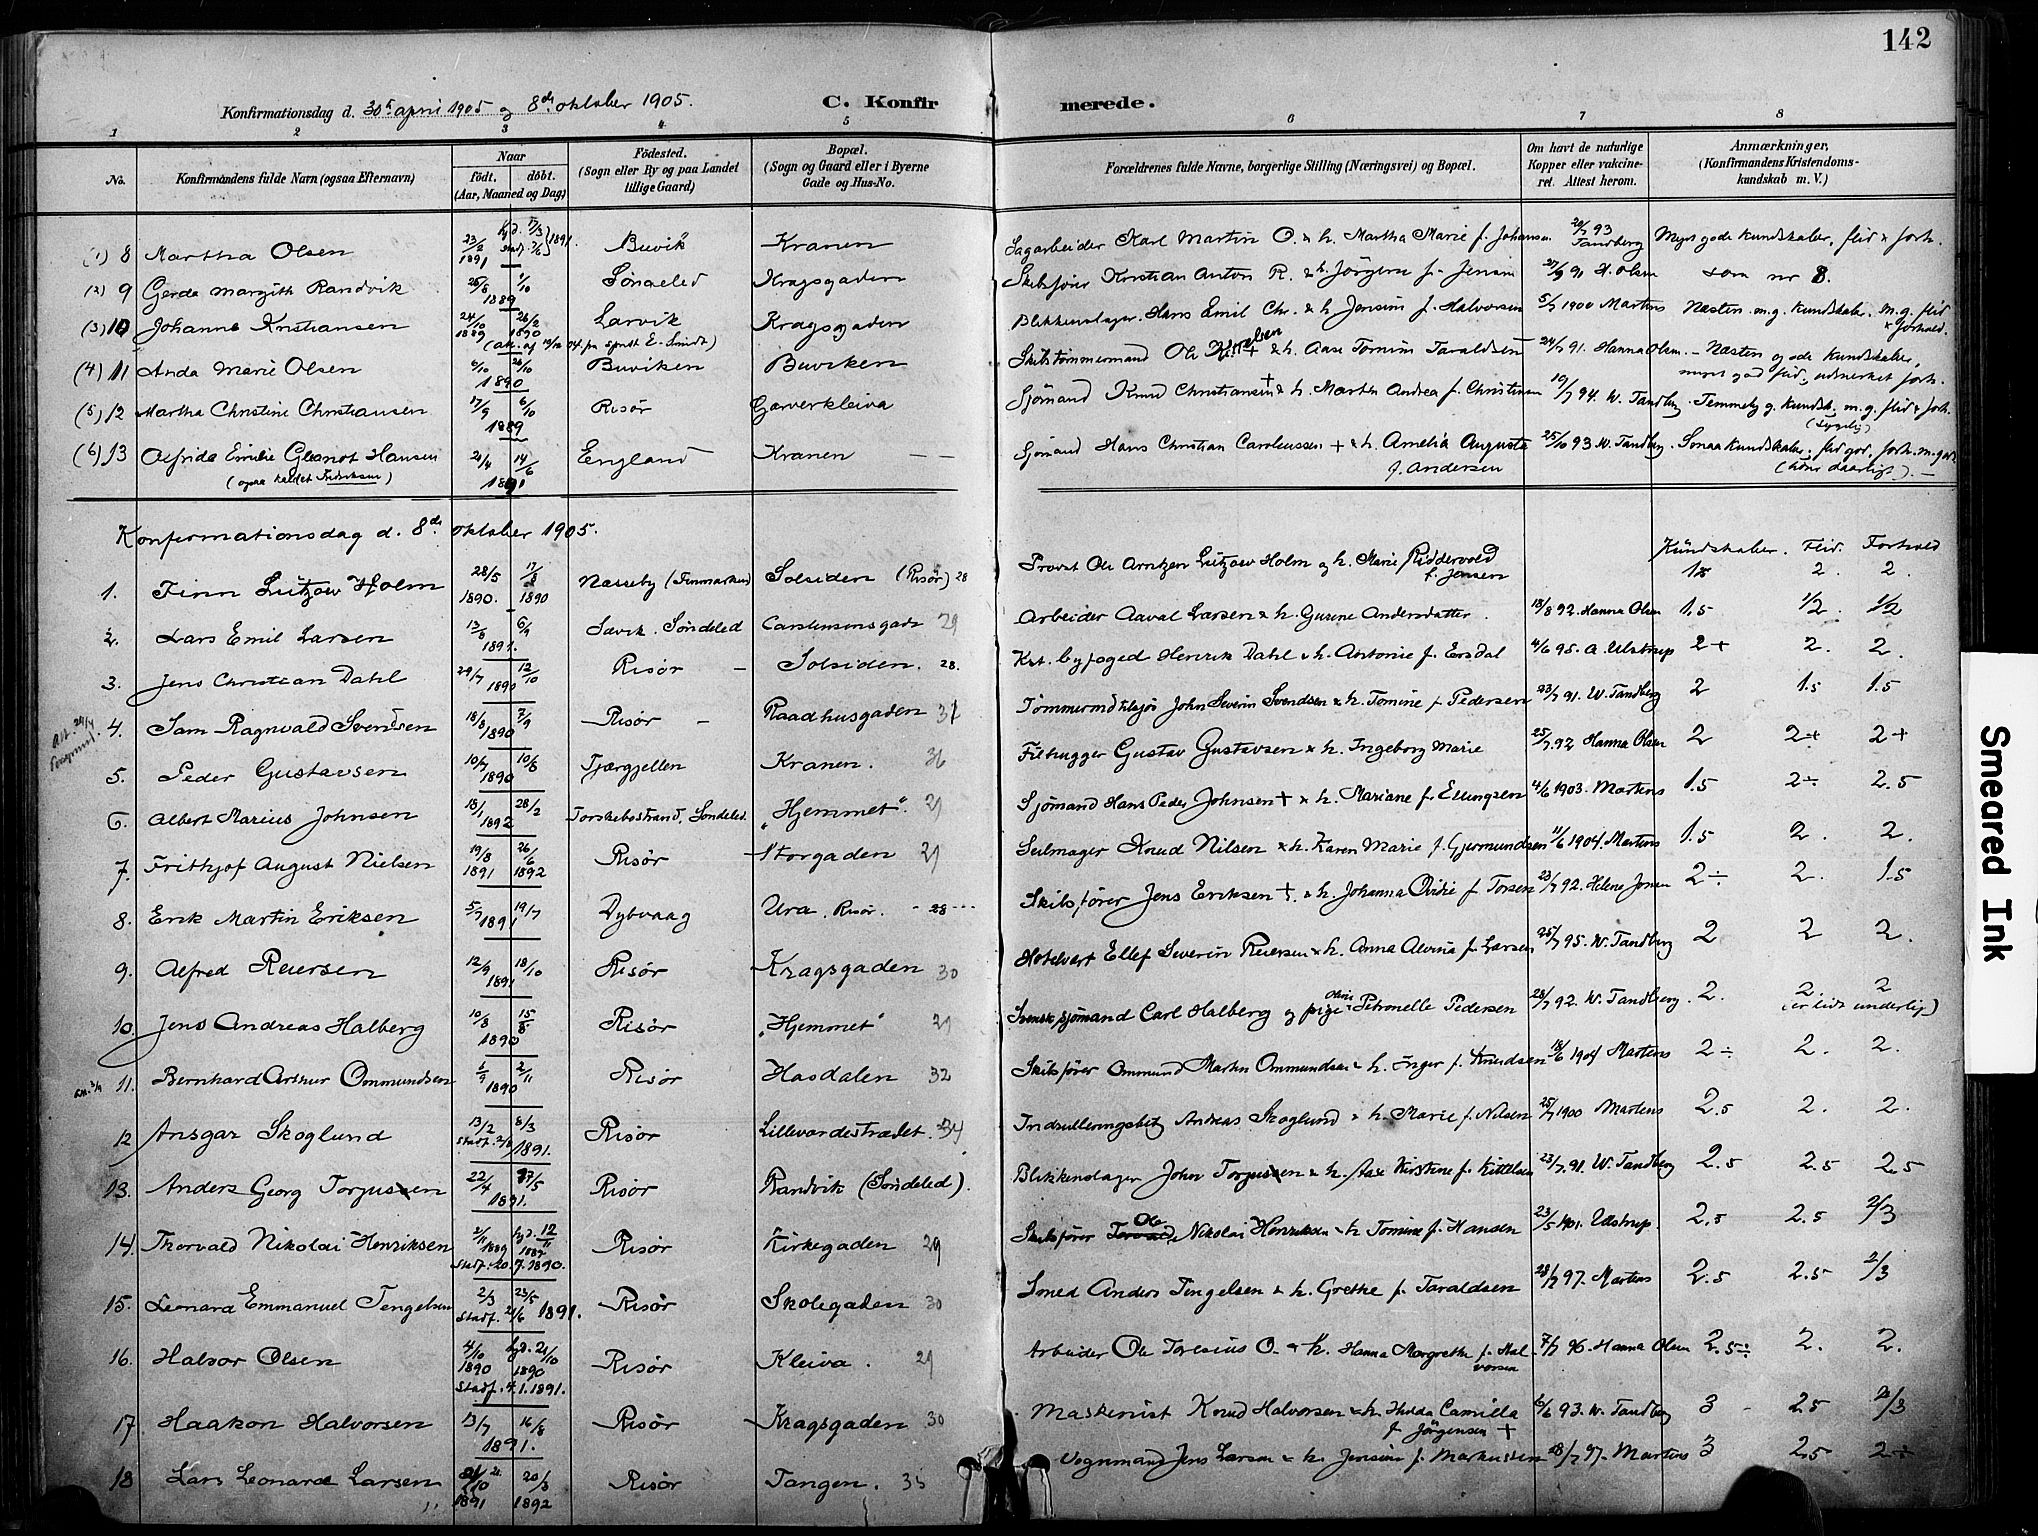 142
Konfirmationsdag d. 30te april 1905 og 8de oktober 1905.
C. Konfirmerede.
1 2 3 4 5 6 7 8
No.
Konfirmandens fulde Navn (ogsaa Efternavn)
Naar
født. døbt.
(Aar, Maaned og Dag)
Fødested.
(Sogn eller By og paa Landet
tillige Gaard)
Bopæl.
(Sogn og Gaard eller i Byerne
Gade og Hus-No.
Forældrenes fulde Navne, borgerlige Stilling (Næringsvei) og Bopæl.
Om havt de naturlige
Kopper eller vakcine-
ret. Attest herom.
Anmærkninger,
(Konfirmandens Kristendoms-
kundskab m. V.)
(1) 8 Martha Olsen 23/2 1891 hjd. 17/3 stadf. 7/6 1891. Buvik Kranen Sagarbeider Karl Martin O. & h. Martha Marie f. Johansen 20/7 93 Tandberg Meget gode kundskaber, flid & forh.
(2) 9 Gerda Margith Randvik 25/8 1/10 1889 Søndeled Kragsgaden Skibsfører Kristian Anton R. & h. Jørgine f. Jensen 27/9 91 H. Olsen som nr 8.
(3) 10 Johanne Kristiansen 24/10 1889 26/2 1890 Larvik Kragsgaden Blikkenslager Hans Emil Chr. & h. Jensine f. Halvorsen 5/7 1900 Martens Næsten m.g. kundskaber. m.g. flid & forhold.
(4) 11 Anda Marie Olsen 6/10 26/10 1890 Buviken Buviken Skibstømmermand Ole + & h. Aase Tomine Taraldsen 24/7 91. Hanna Olsen. Næsten gode kundskaber, meget god flid, udmerket forh.
(5) 12 Martha Christine Christiansen 17/9 6/10 1889 Risør Garverkleiva Sjømand Knud Christiansen + & h. Marthe Andrea f. Christensen 19/7 94. W. Tandberg. Temmelig g. kundsk. m.g. flid & forh. (sygelig)
(6) 13 Alfrida Emilie Hansen (ogsaa kaldet Fredriksen) 21/4 14/6 1891 England Kranen Sjømand Hans Christian Caroliussen + & h. Amelia Augusta f. Andersen 25/10 93. W. Tandberg Smaa kundskaber, flid god, forh. m. godt (hører daarligt).
Konfirmationsdag d. 8de oktober 1905.
Kundskaber. Flid. Forhold
1. Finn Lützow Holm 28/5 1890. 17/8 1890 Nesseby (Finmarken) Solsiden (Risør) 28 Provst Ole Arntzen Lützow Holm og h. Marie Riddervold f. Jensen 2. 2.
2. Lars Emil Larsen 13/8 6/9 1891. Søndeled Carstensensgade 29 Arbeider Aaval Larsen & h. Gurine Andersdatter. 18/8 92. Hanna Olsen 1.5 1/2. 1/2
3. Jens Christian Dahl 29/7 12/10 1890 Risør Solsiden. 28. Kst. byfoged Henrik Dahl & h. Antonie f. Ersdal 4/6 95. A. Ulstrup 2+ 2. 2.
4. Sam Ragnvald Svendsen 18/8 7/9 1890 Risør Raadhusgaden Tømmermd tilsjøs John Severin Svendsen & h. Tomine f. Pedersen 23/7 91. W. Tandberg 2 1.5 1.5
5. Peder Gustavsen 10/7 10/8 1890 Tjærgjellen Kranen. 36 Filhugger Gustav Gustavsen & h. Ingeborg Marie 25/7 92 Hanna Olsen 2 2+ 2+
6. Albert Marius Johnsen 18/1 28/2 1892 Torskebostrand, Søndeled. "Hjemmet". 29 Sjømand Hans Peder Johnsen + & h. Mariane f. Ellingsen 4/6 1903. Martens 1.5 2÷ 2.5
7. Frithjof August Nielsen 19/8 1891 26/6 1892 Risør Storgaden 29 Seilmager Knud Nilsen & h. Karen Marie f. Gjermundsen 11/6 1904. Martens 1.5 2. 2.
8. Erik Martin Eriksen 5/7 19/7 1891 Dybvaag Ura, Risør. 28 Skibsfører Jens Eriksen + & h. Johanna Ovidie f. Torsen 23/7 92. Helene Jensen 2÷ 2. 1.5
9. Alfred Reiersen 12/9 18/10 1891 Risør Kragsgaden 30 Hotelvert Ellef Severin Reiersen & h. Anna Alvina f. Larsen 25/7 95. W. Tandberg 2 2 2.
10. Jens Andreas Halberg 10/3 15/8 1890 Risør "Hjemmet" 29 Svensk sjømand Carl Halberg og pige Oline Petronelle Pedersen 28/7 92. W. Tandberg. 2. 2. 2 (er lidt underlig)
11. Bernhard Arthur Ommundsen 5/9 2/11 1890 Risør Hasdalen 32 Skibsfører Ommund Martin Ommundsen & h. Inger f. Knudsen 18/6 1904 Martens 2÷ 2. 2.
12 Ansgar Skoglund 13/2 8/3 Stadf. 2/8 1891. Risør Lillevardestrædet. 34 Indrulleringsbetj Andreas Skoglund & h. Marie f. Nilsen 25/7 1900 Martens 2.5 2. 2.
13. Anders Georg Torjussen 22/4 17/5 1891. Risør Randvik (Søndeled). Blikkenslager John Torjussen & h. Aase Kirstine f. Kittelsen 23/7 91. W. Tandberg 2.5 2.5 2.5
14. Thorvald Nikolai Henriksen 2/11 1889 hjd. 12/11 1889 Stadf. 20.7.1890. Risør Kirkegaden 29 Skibsfører Ole Nikolai Henriksen & h Tomine f. Hansen 23/5 1901. Ulstrup. 2.5 2.5 2/3
15. Leonard Emmanuel Tengelsen 2/3 23/5 Stadf. 21/6 1891. Risør Skolegaden 30 Smed Anders Tengelsen & h. Grethe f. Taraldsen 28/7 97. Martens 2.5 2.5 2/3
16. Halvor Olsen 4/10 1890 hjd. 21/10 1890 Stadf. 4.1.1891. Risør Kleiva. 29 Arbeider Ole Toresius O. & h. Hanna Margrethe f. Halvorsen 7/7 96. Hanna Olsen 2.5÷ 2. 2.
17 Haakon Halvorsen 13/7 16/8 1891. Risør Kragsgaden 30 Maskinist Knud Halvorsen & h. Hulda Camilla f. Jørgensen + 6/6 93. W. Tandberg 3 2.5 2/3
18 Lars Leonard Larsen 1891 20/3 1892 Risør Tangen. 35 Vognmand Jens Larsen & h. Jensine f. Markussen 28/7 97. Martens 3 2.5 2÷
Smeared Ink